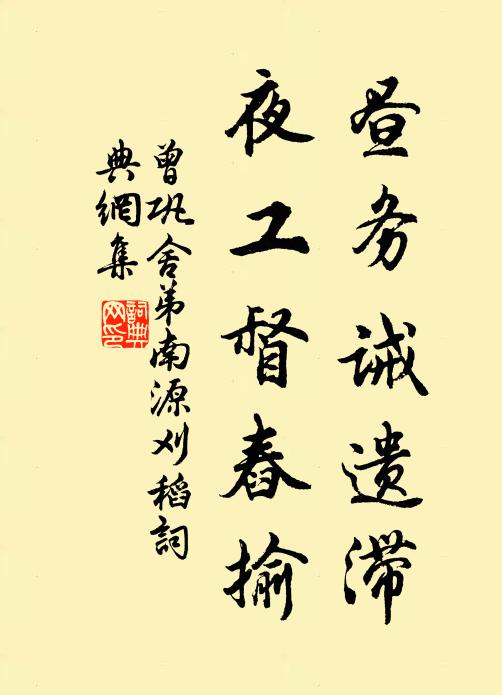 昼务诫遗滞
夜工督舂揄
曾巩舍弟南源刈稻詞
典網集
詞典
网印